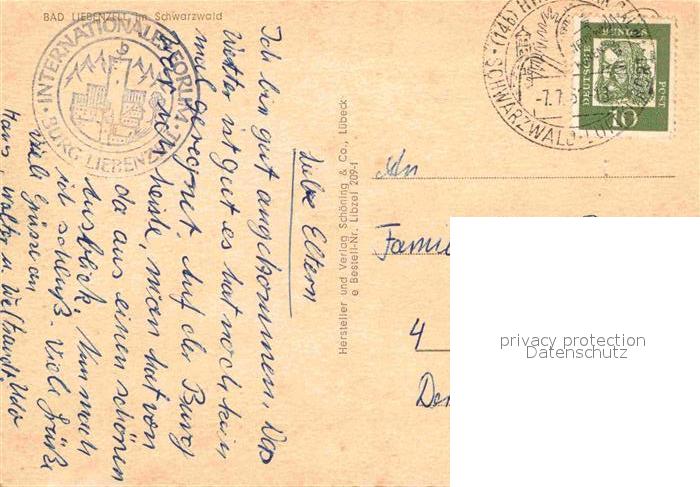 BAD LIEBENZELL im Schwarzwald
INTERNATIONALES FORUM
BURG LIEBENZELL
Liebe Eltern
Ich bin gut angekommen. Das
Wetter ist gut es hat noch kein
mal geregnet. Auf der Burg
ist es sehr heute, man hat von
da aus einen schönen
Ausblick. Nun mach
ich schluß. Viele Grüße
Viele Grüsse an
Hans, Walter u. Weltraudt. Udo
Hersteller und Verlag Schöning & Co., Lübeck
e Bestell-Nr. Libzel 209-1
(14b)
SCHWARZWALD
DEUTSCHE BUNDES POST
10
An
Famil
4
De
privacy protection
Datenschutz